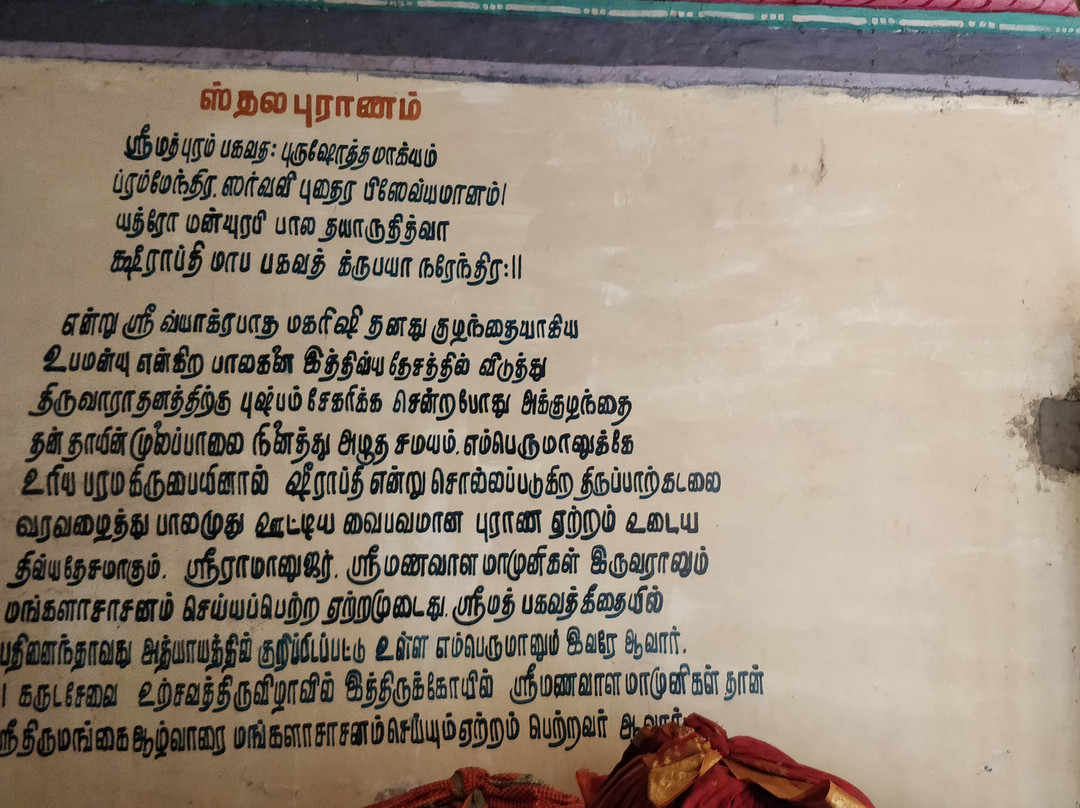 ஸ்தலபுராணம்
ஸ்ரீமத்புரம் பகவத: புருஷோத்தமாக்யம்
ப்ரம்மேந்திர, ஸர்வவி புதைர பிஸேவ்யமானம்।
யத்ரோ மன்யுரபி பால தயாருதித்வா
க்ஷீராப்தி மாப பகவத் க்ருபயா நரேந்திர:॥
என்று ஸ்ரீ வ்யாக்ரபாத மகரிஷி தனது குழந்தையாகிய
உபமன்யு என்கிற பாலகனை இத்திவ்ய தேசத்தில் விடுத்து
திருவாராதனத்திற்கு புஷ்பம் சேகரிக்க சென்றபோது அக்குழந்தை
தன் தாயின் முலைப்பாலை நினைத்து அழுத சமயம், எம்பெருமானுக்கே
உரிய பரமகிருபையினால் ஷீராப்தி என்று சொல்லப்படுகிற திருப்பாற்கடலை
வரவழைத்து பாலமுது ஊட்டிய வைபவமான புராண ஏற்றம் உடைய
திவ்யதேசமாகும். ஸ்ரீராமானுஜர், ஸ்ரீமணவாள மாமுனிகள் இருவராலும்
மங்களாசாசனம் செய்யப்பெற்ற ஏற்றமுடைது. ஸ்ரீமத் பகவத்கீதையில்
பதினைந்தாவது அத்யாயத்தில் குறிப்பிடப்பட்டு உள்ள எம்பெருமானும் இவரே ஆவார்.
கருடசேவை உற்சவத்திருவிழாவில் இத்திருக்கோயில் ஸ்ரீமணவாள மாமுனிகள் தான்
ஸ்ரீதிருமங்கைஆழ்வாரை மங்களாசாசனம்செய்யும் ஏற்றம் பெற்றவர் ஆவார்.